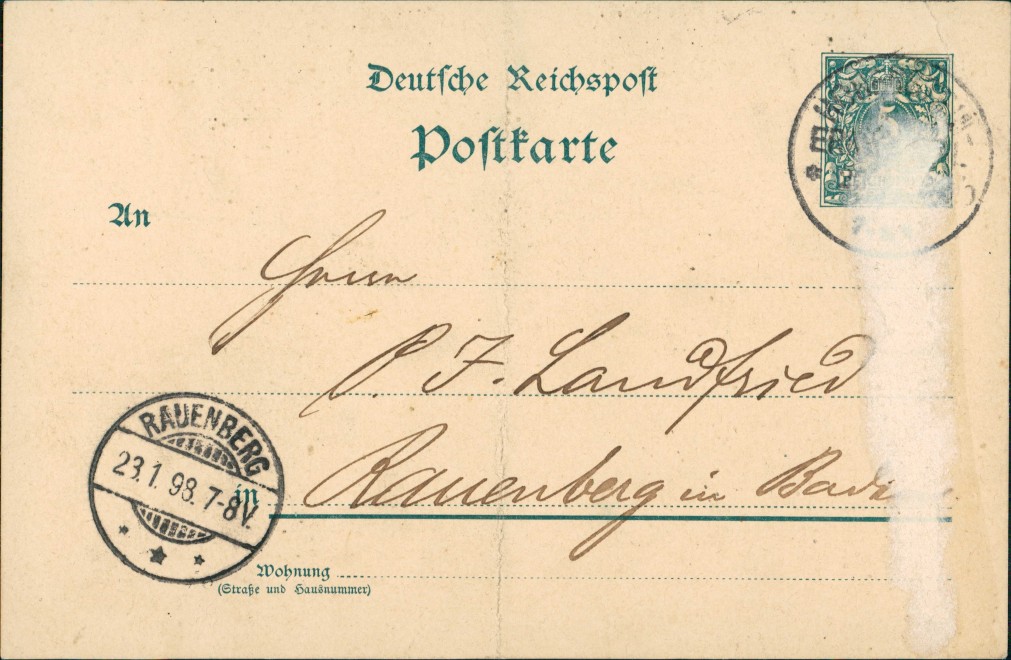 Deutsche Reichspost
Postkarte
An
Herrn
P. J. Landfried
RAUENBERG
23.1.98.7-8V.
in Rauenberg in Baden
Wohnung
(Straße und Hausnummer)